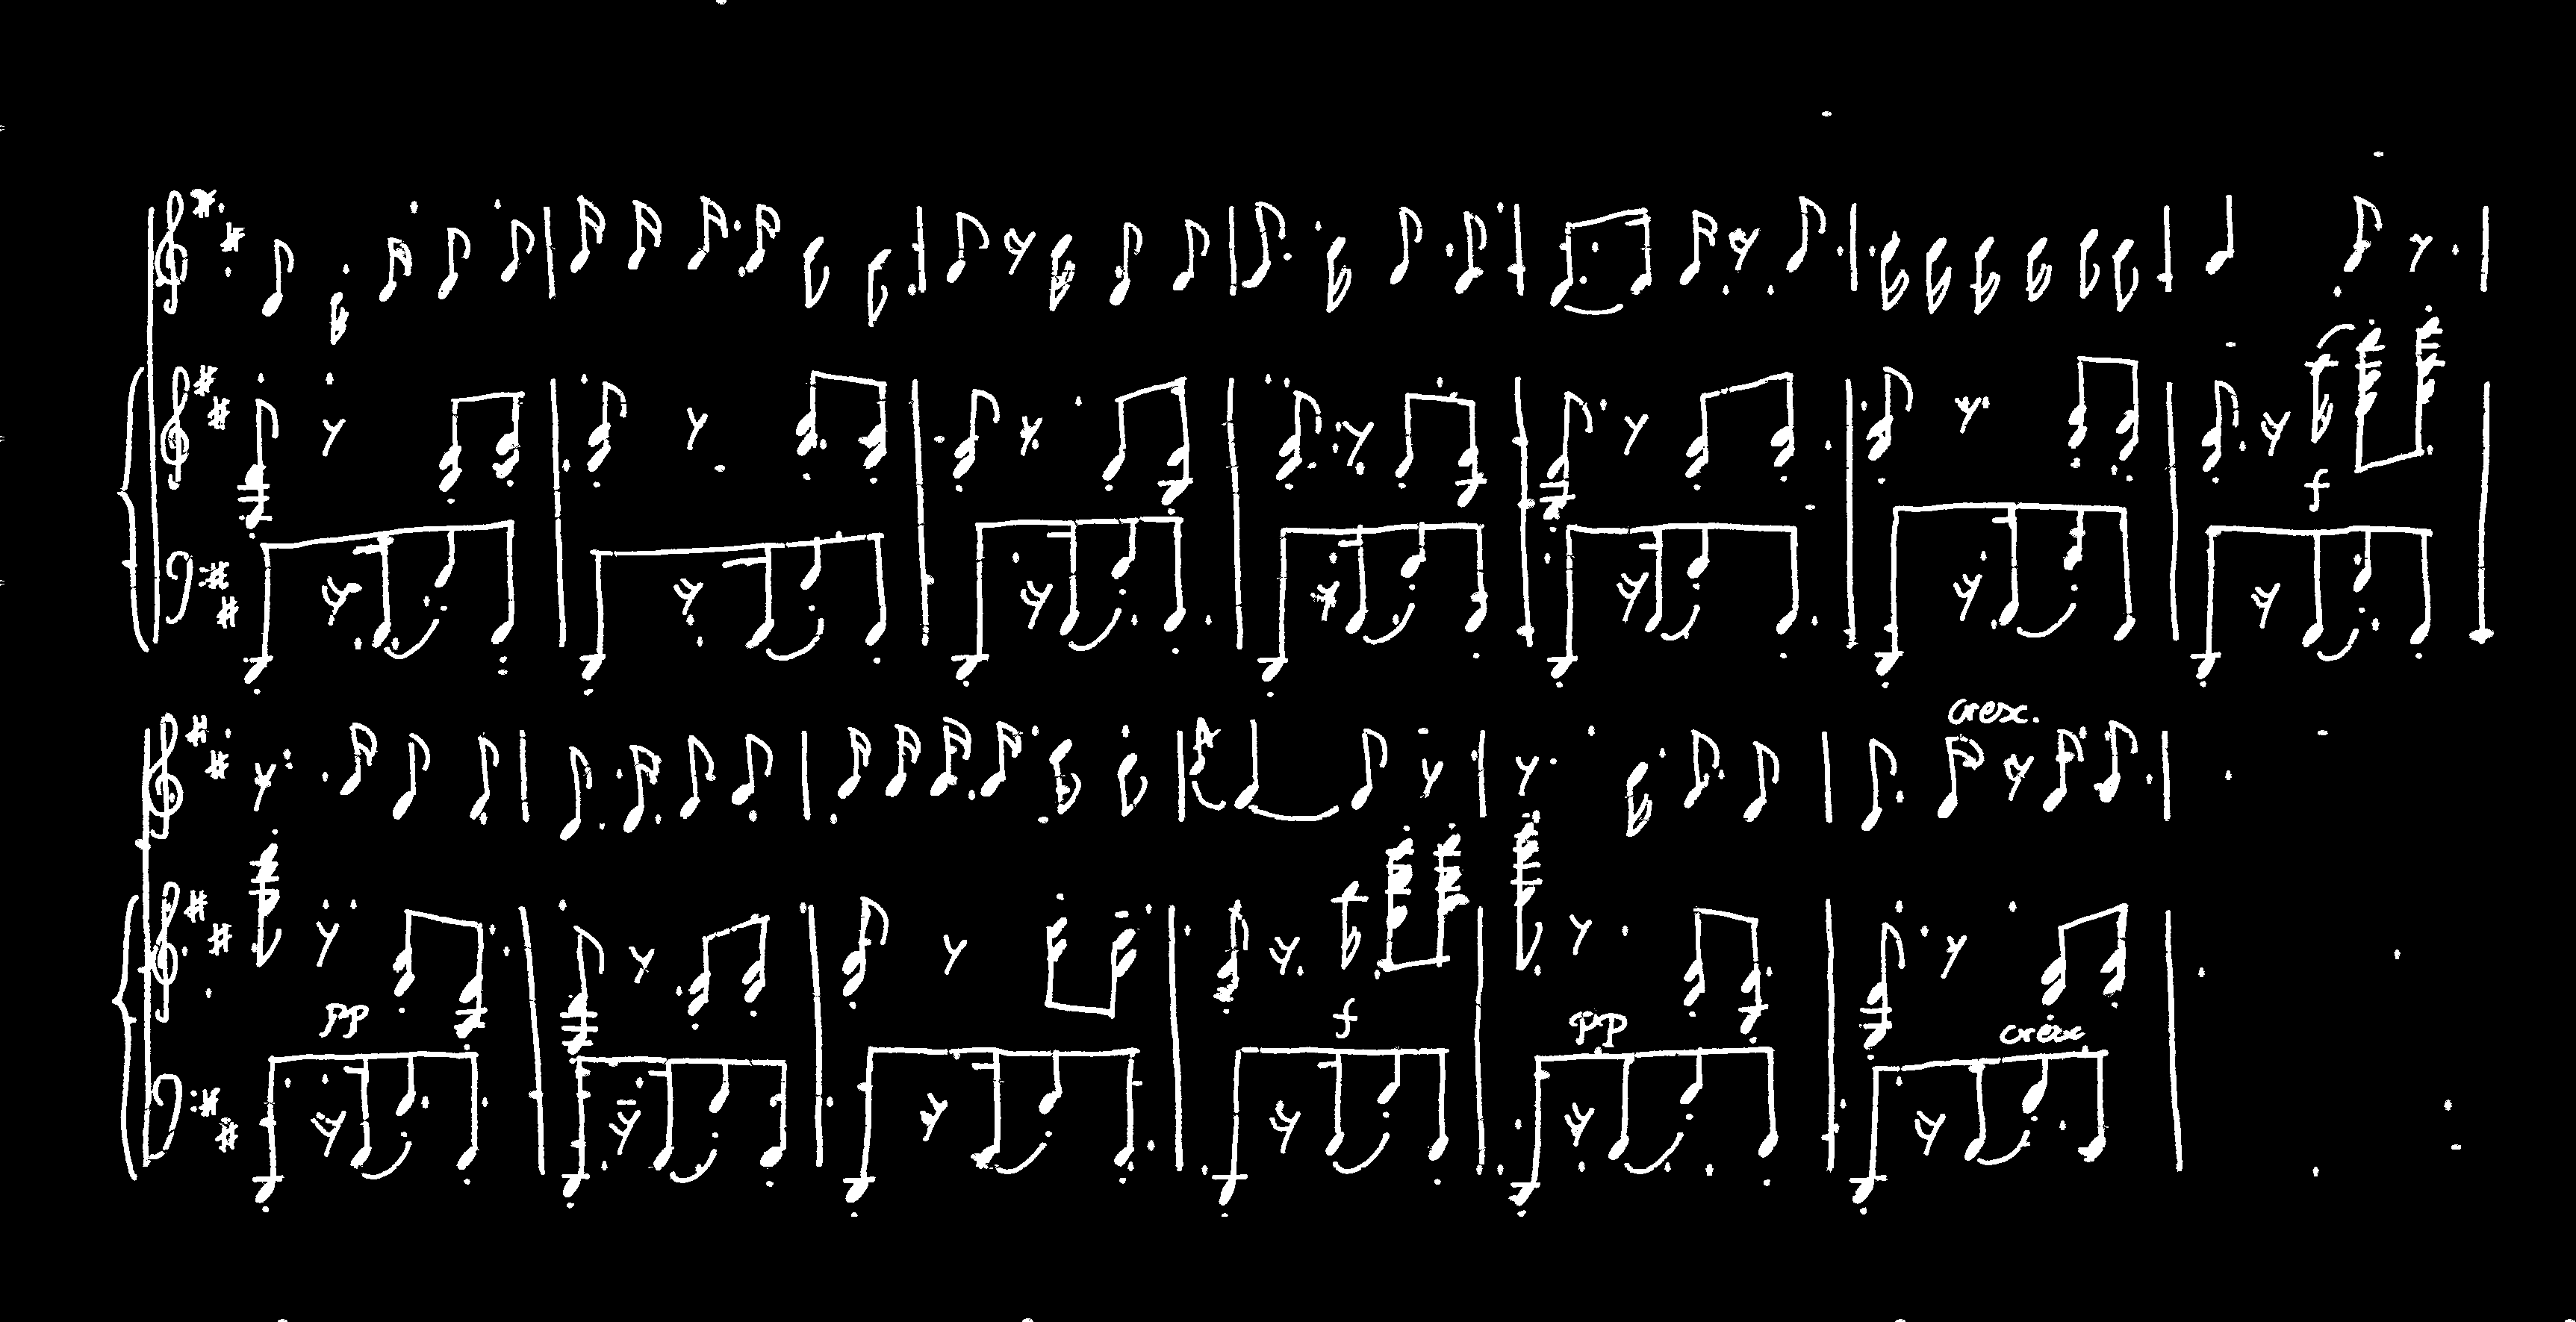 cresc.
f
pp
f
pp
cresc